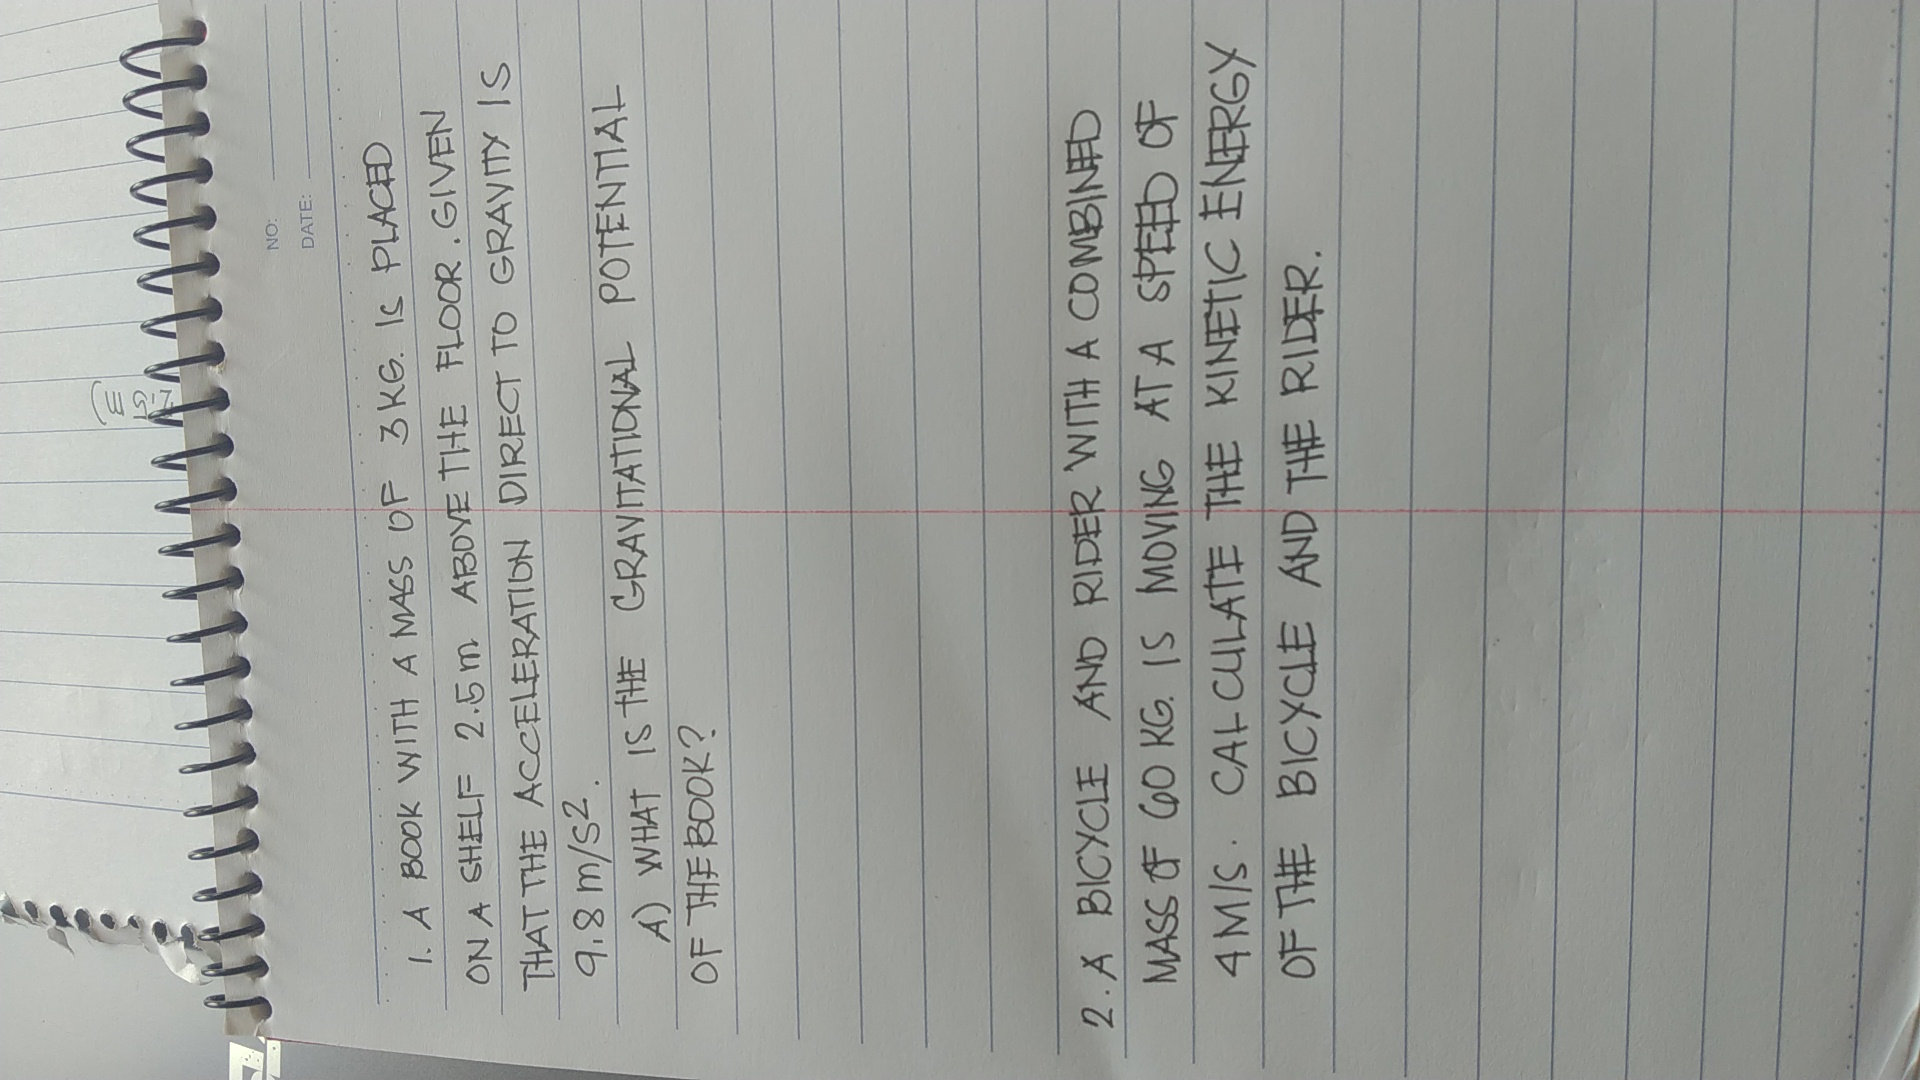 NO:
DATE:
2.5 m)
1. A BOOK WITH A MASS OF 3 KG. IS PLACED
ON A SHELF 2.5 m ABOVE THE FLOOR. GIVEN
THAT THE ACCELERATION DIRECT TO GRAVITY IS
9.8 m/s2.
A) WHAT IS THE GRAVITATIONAL POTENTIAL
OF THE BOOK?
2. A BICYCLE AND RIDER WITH A COMBINED
MASS OF 60 KG. IS MOVING AT A SPEED OF
4 M/S. CALCULATE THE KINETIC ENERGY
OF THE BICYCLE AND THE RIDER.